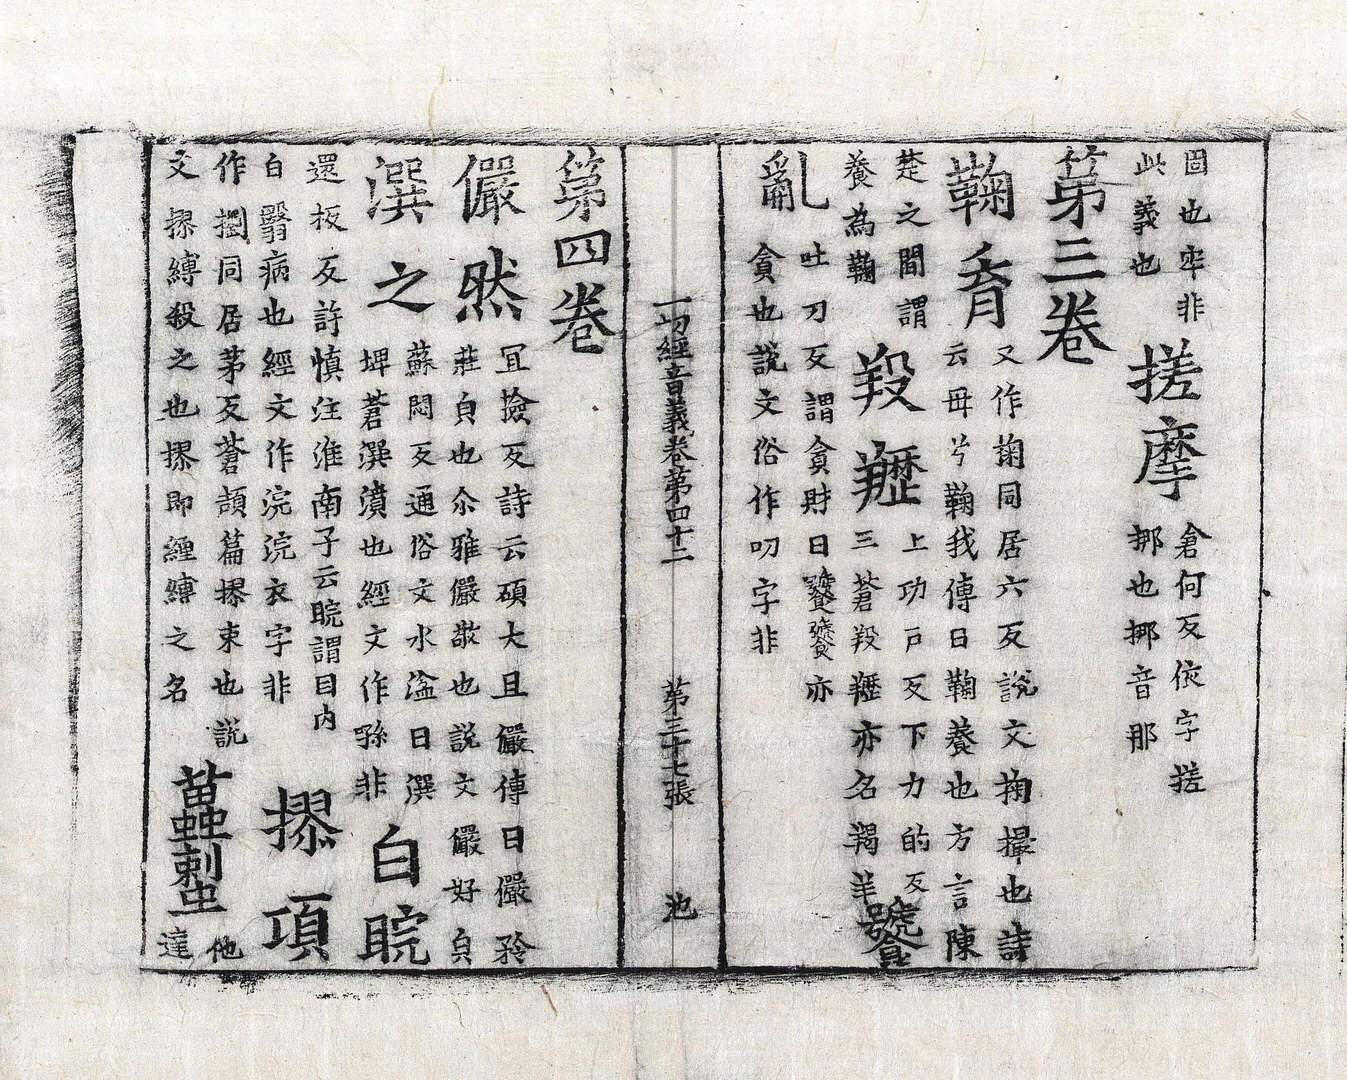 圄也牢非
此義也
搓摩
倉何反依字搓
挪也挪音那
第三卷
鞠育
又作掬同居六反說文掬撮也詩
云毋兮鞠我傳曰鞠養也方言陳
楚之間謂
養為鞠
羖䍽
上功戶反下力的反
三蒼羖䍽亦名羯羊
饕
亂
吐刀反謂貪財曰饕饕亦
貪也說文俗作叨字非
一切經音義卷第四十二
第三十七張
池
第四卷
儼然
冝撿反詩云碩大且儼傳曰儼矜
莊皃也尒雅儼敬也說文儼好皃
潠之
蘇悶反通俗文水湓曰潠
埤蒼潠濆也經文作孫非
白睆
還板反許慎注淮南子云睆謂目內
白翳病也經文作浣浣衣字非
摎項
作摑同居茅反蒼頡篇摎束也說
文摎縛殺之也摎即纏縛之名
苗
他
達